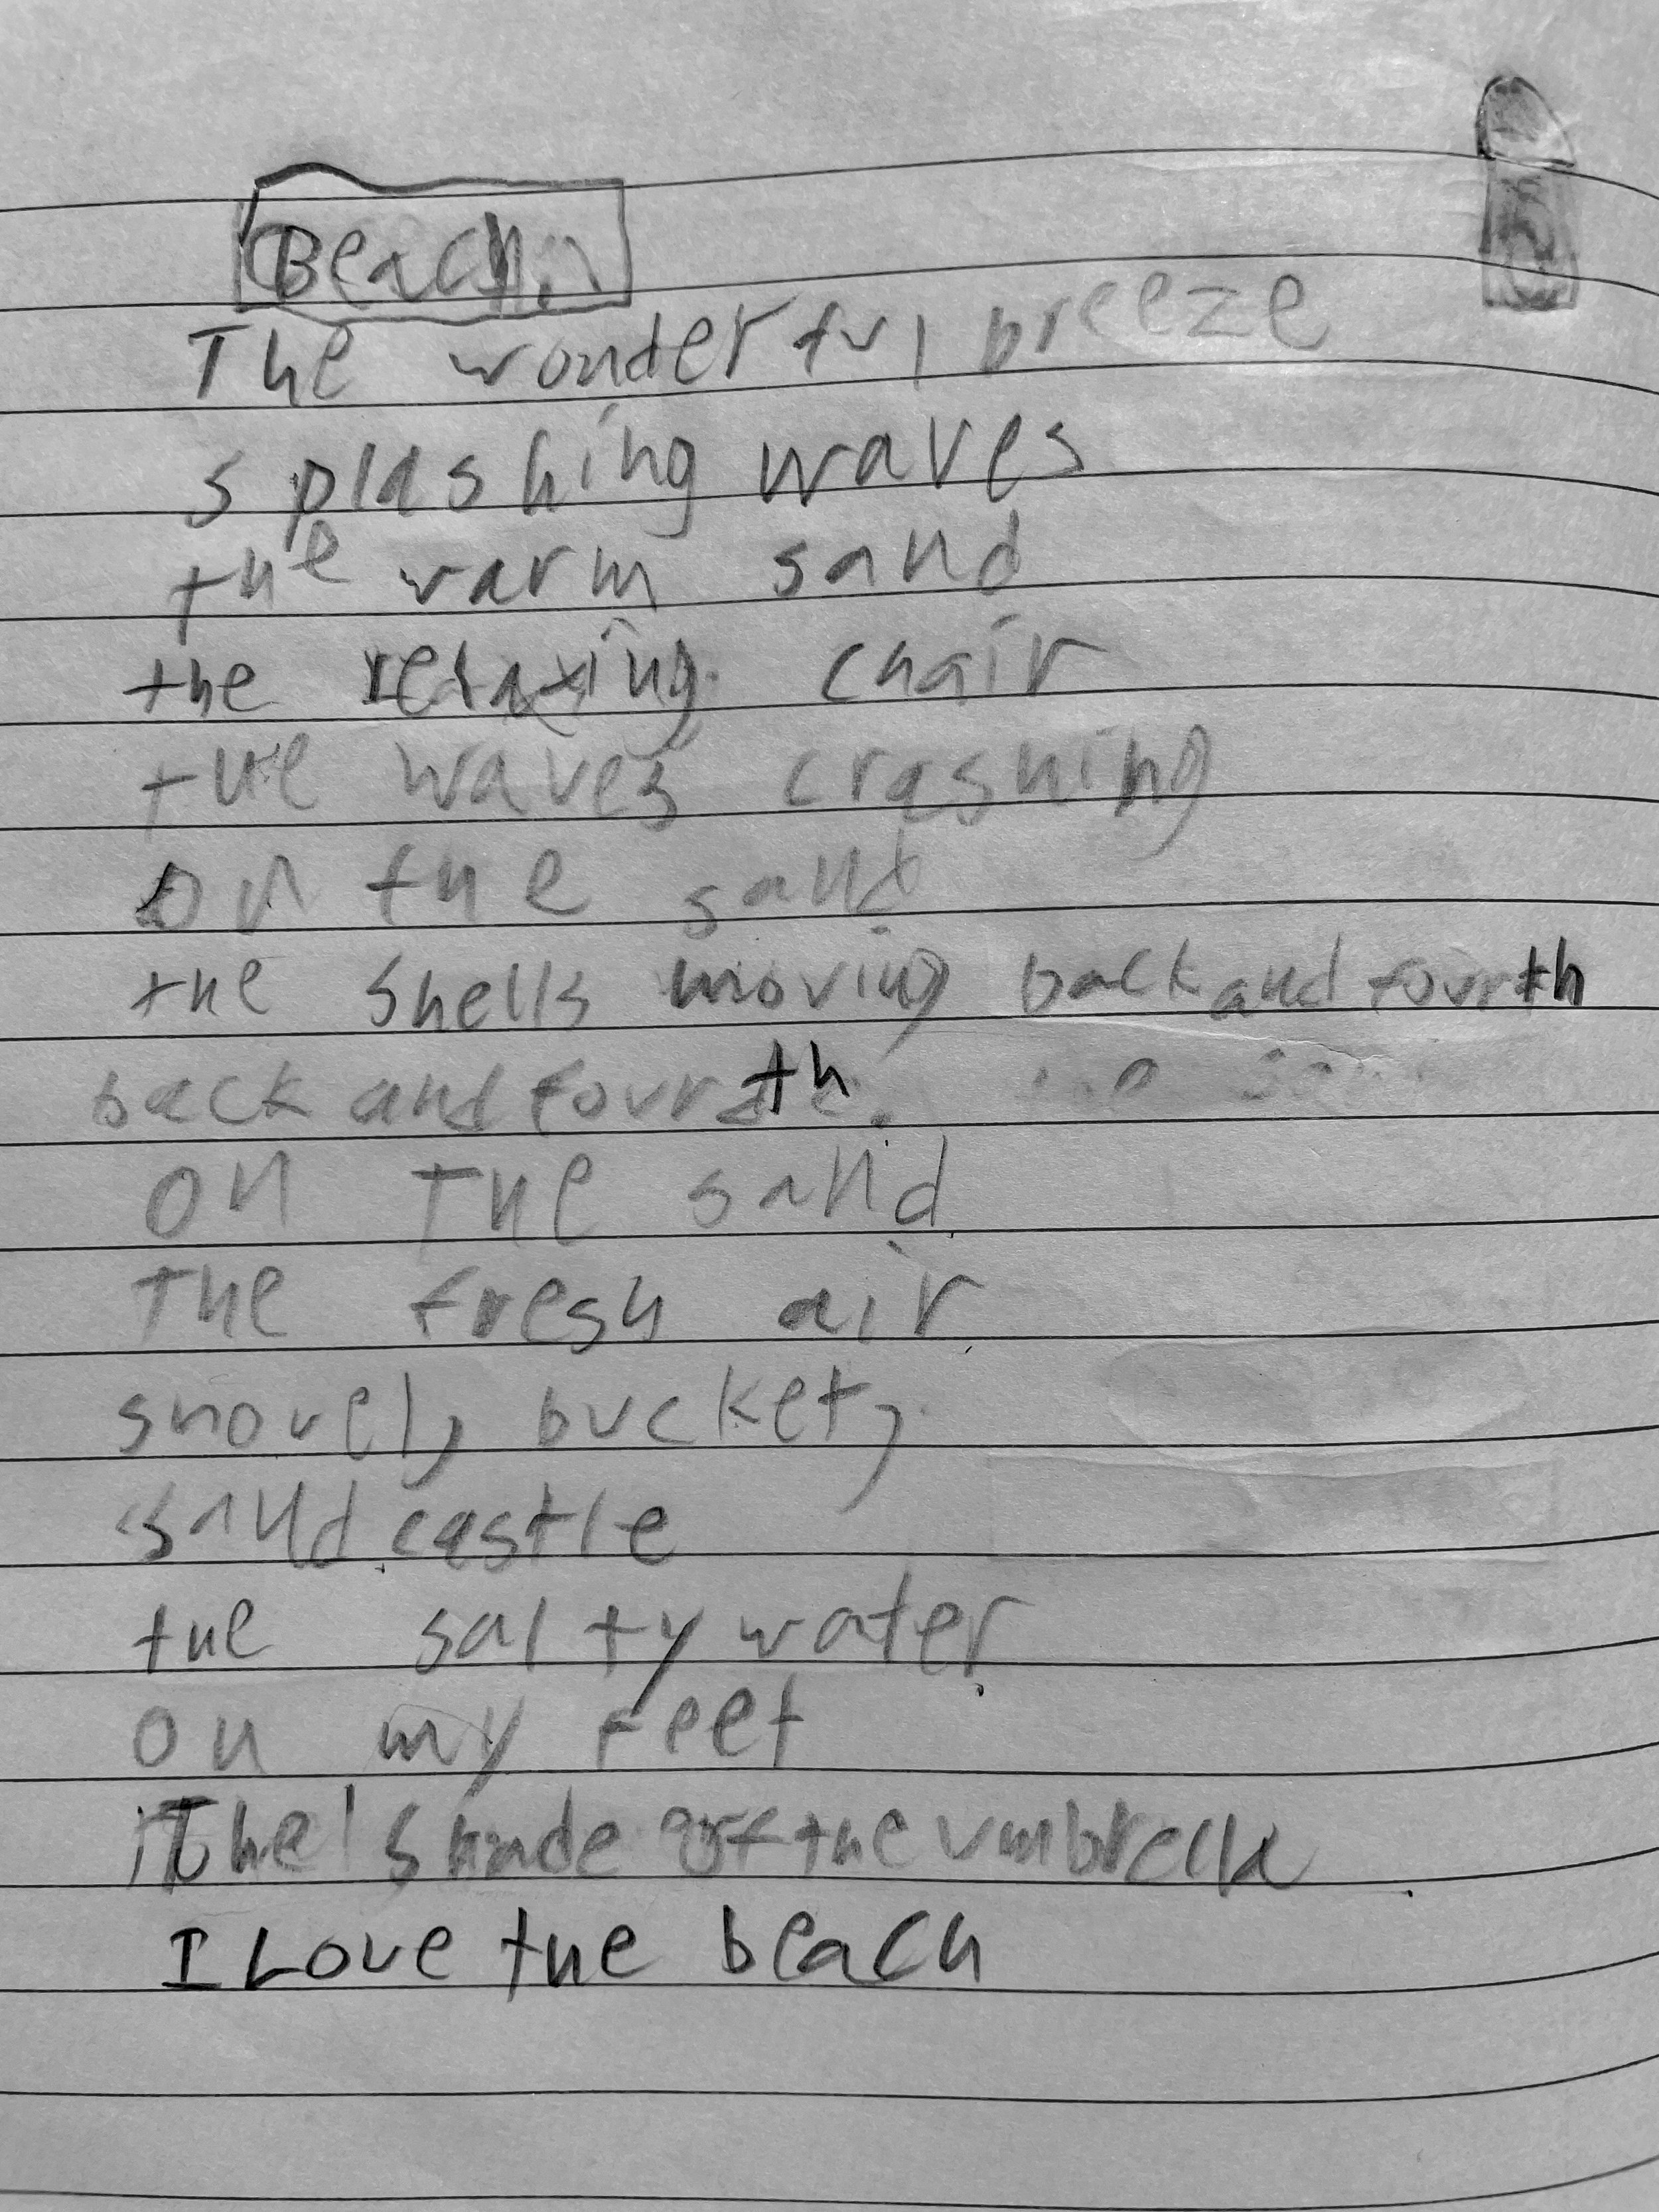 Beach
The wonderful breeze
splashing waves
the warm sand
the relaxing chair
the waves crashing
on the sand
the shells moving back and fourth
back and fourth.
on the sand
The fresh air
shovel, bucket,
sand castle
the salty water
on my feet
The shade of the umbrella
I Love the beach